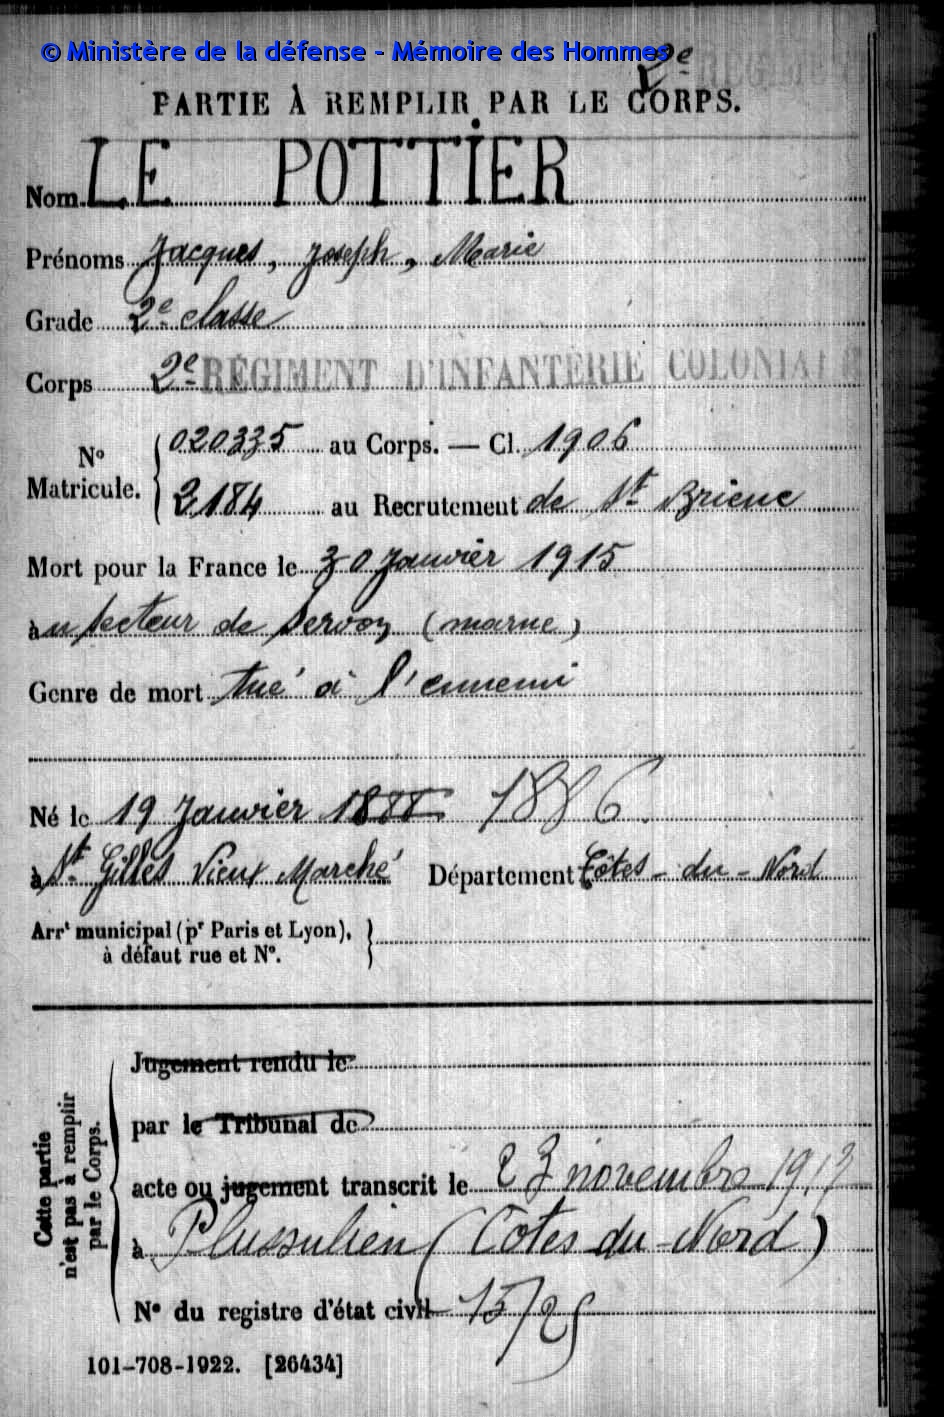 © Ministère de la défense - Mémoire des Hommes
2e
PARTIE À REMPLIR PAR LE CORPS.
Nom LE POTTIER
Prénoms Jacques, Joseph, Marie
Grade 2e classe
Corps 2e RÉGIMENT D'INFANTERIE COLONIALE
No Matricule. 020335 au Corps. — Cl. 1906
2184 au Recrutement de St Brieuc
Mort pour la France le 30 Janvier 1915
à u secteur de Servon (marne)
Genre de mort tué à l'ennemi
Né le 19 Janvier 1886.
à St Gilles Vieux Marché Département Côtes-du-Nord
Arrt municipal (pr Paris et Lyon),
à défaut rue et No.
Cette partie
n'est pas à remplir
par le Corps.
Jugement rendu le
par le Tribunal de
acte ou jugement transcrit le 23 novembre
à Plussulien (Côtes-du-Nord)
No du registre d'état civil
101-708-1922. [26434]